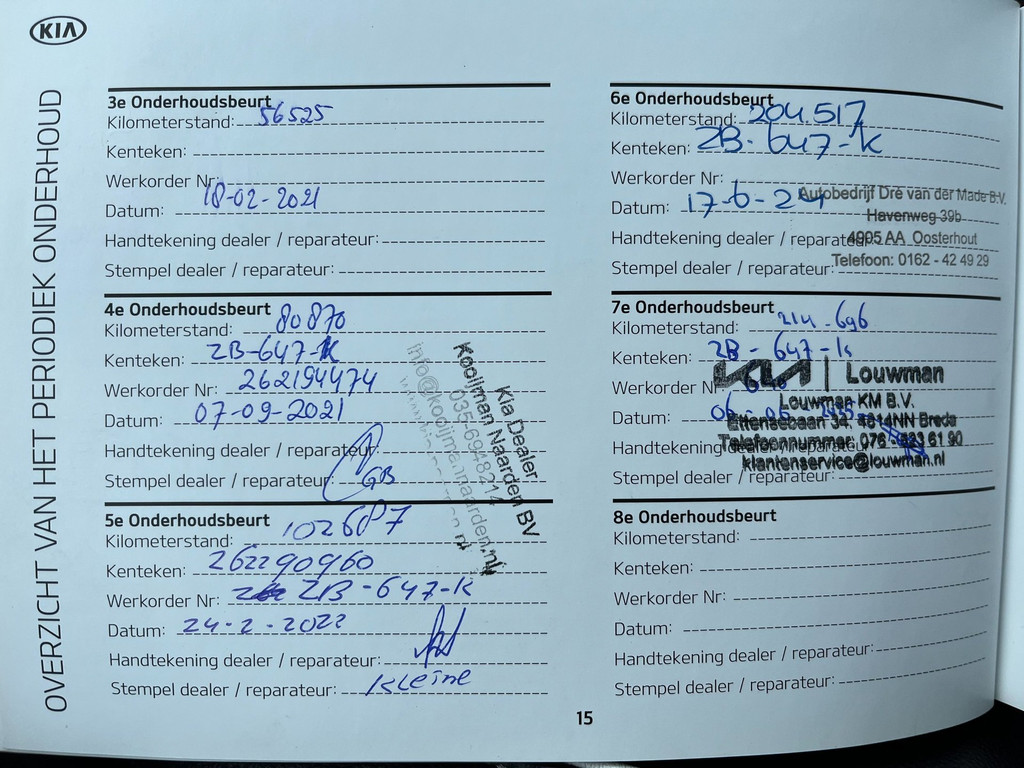 KIA
OVERZICHT VAN HET PERIODIEK ONDERHOUD
3e Onderhoudsbeurt
Kilometerstand: 56525
Kenteken:
Werkorder Nr:
Datum: 18-02-2021
Handtekening dealer / reparateur:
Stempel dealer / reparateur:
4e Onderhoudsbeurt
Kilometerstand: 80870
Kenteken: ZB-647-K
Werkorder Nr: 262194474
Datum: 07-09-2021
Handtekening dealer / reparateur:
Stempel dealer / reparateur: GB
Kia Dealer
Kooijman Naarden BV
035-6948214
info@kooijmannaarden.nl
5e Onderhoudsbeurt
Kilometerstand: 102687
Kenteken: 262290960
Werkorder Nr: ZB-647-K
Datum: 24-2-2022
Handtekening dealer / reparateur:
Stempel dealer / reparateur: Kleine
6e Onderhoudsbeurt
Kilometerstand: 204.517
Kenteken: ZB-647-K
Werkorder Nr:
Datum: 17-6-24
Handtekening dealer / reparateur:
Stempel dealer / reparateur:
Autobedrijf Dré van der Made B.V.
Havenweg 39b
4905 AA Oosterhout
Telefoon: 0162 - 42 49 29
7e Onderhoudsbeurt
Kilometerstand: 214.696
Kenteken: ZB-647-K
Werkorder Nr:
Datum: 06-05-
Handtekening dealer / reparateur:
Stempel dealer / reparateur:
KIA | Louwman
Louwman KM B.V.
Ettensebaan 34, 4814NN Breda
Telefoonnummer: 076 - 523 61 90
klantenservice@louwman.nl
8e Onderhoudsbeurt
Kilometerstand:
Kenteken:
Werkorder Nr:
Datum:
Handtekening dealer / reparateur:
Stempel dealer / reparateur:
15